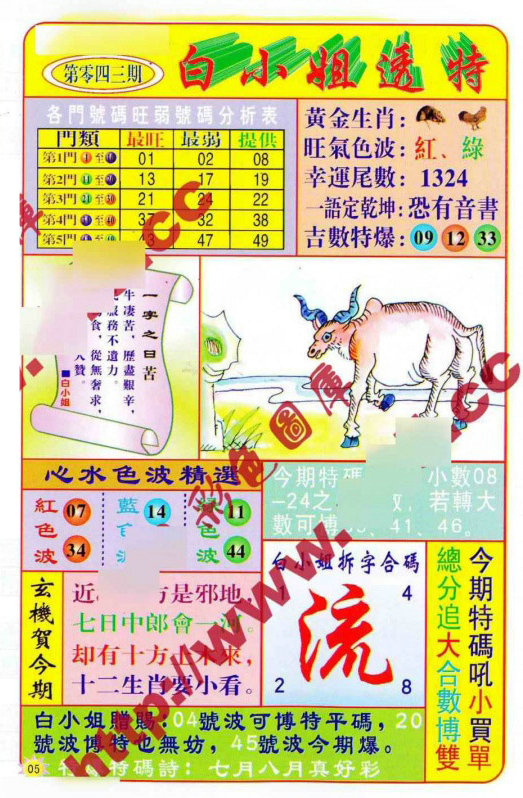 第零四三期
白小姐透特
各門號碼旺弱號碼分析表
門類 最旺 最弱 提供
第1門 至 01 02 08
第2門 至 13 17 19
第3門 至 21 24 22
第4門 至 37 32 38
第5門 至 43 47 49
黃金生肖:
旺氣色波:紅、綠
幸運尾數:1324
一語定乾坤:恐有音書
吉數特爆:09 12 33
一字之曰苦
牛凄苦,歷盡艱辛,
服務不遺力。
食,從無奢求,
人贊。
■白小姐
心水色波精選
紅色波 07 34
藍 波 14
色波 11 44
今期特碼 小數08
-24之 ,若轉大
數可博 、41、46。
玄機賀今期
近 方是邪地,
七日中郎會一河。
却有十方 來,
十二生肖要小看。
白小姐拆字合碼
1 4
流
2 8
今期特碼吼小買單
總分追大合數博雙
白小姐贈賜:04號波可博特平碼,20
號波博特也無妨,45號波今期爆。
特碼詩:七月八月真好彩
05
彩色圖庫
http://www.
.cc